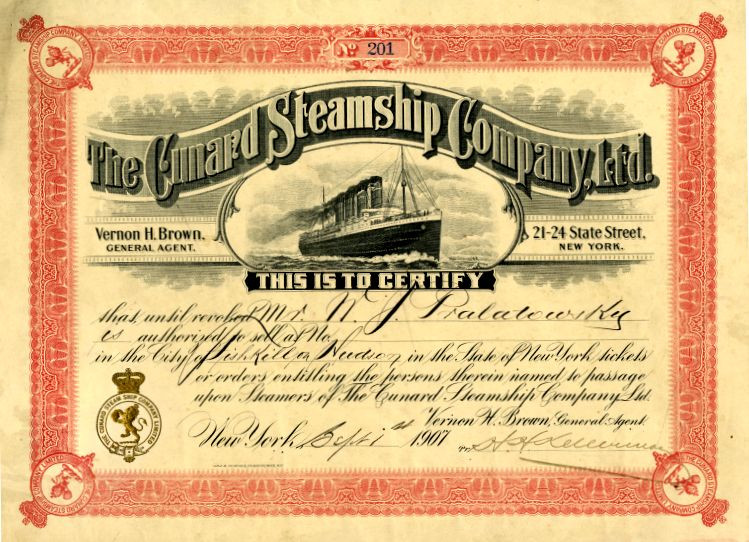 No 201
The Cunard Steamship Company, Ltd.
Vernon H. Brown,
GENERAL AGENT.
21-24 State Street,
NEW YORK.
THIS IS TO CERTIFY
that, until revoked Mr. N. J. Pralatowsky
is authorized to sell at No.
in the City of Fishkill on Hudson in the State of New York tickets
or orders entitling the persons therein named to passage
upon Steamers of The Cunard Steamship Company Ltd.
Vernon H. Brown, General Agent.
New York, Sept 1st 1907
THE CUNARD STEAM SHIP COMPANY LIMITED